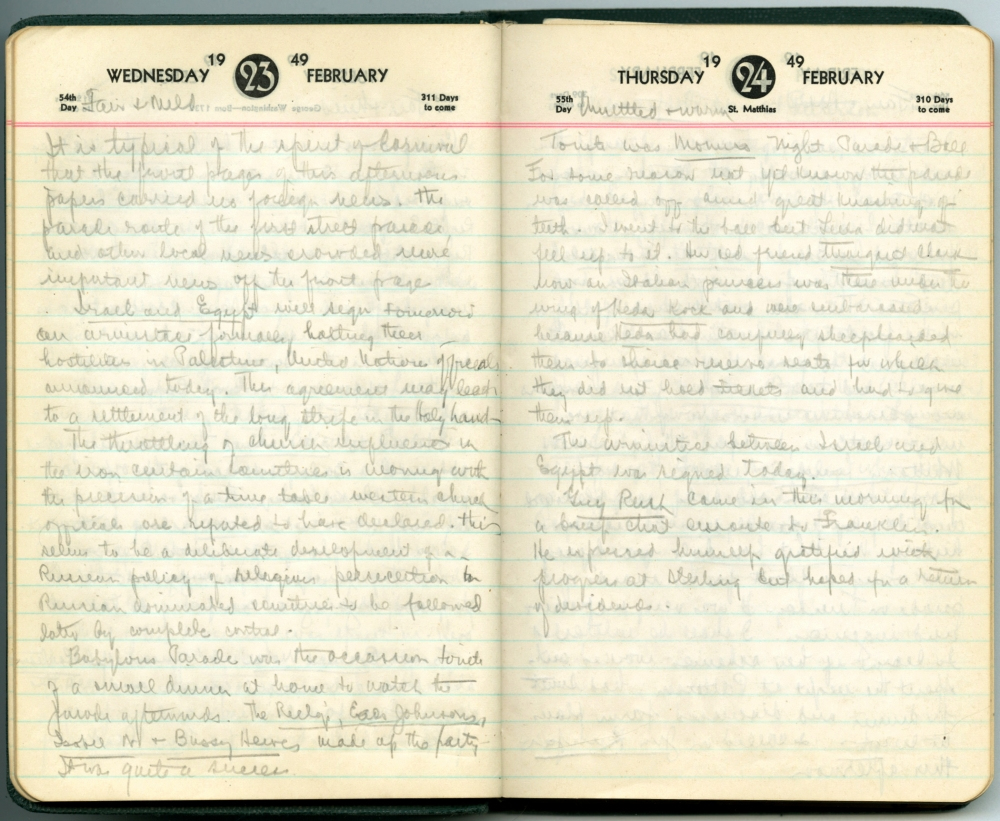 WEDNESDAY 19 23 49 FEBRUARY
54th Day Fair & Mild 311 Days to come
It is typical of the spirit of Carnival
that the front pages of this afternoons
papers carried no foreign news. The
parade route of the first street parade,
and other local news crowded more
important news off the front page
Israel and Egypt will sign tomorrow
an armistice formally halting their
hostilities in Palestine, United Nations officials
announced today. This agreement may lead
to a settlement of the long strife in the Holy Land
The throttling of church influence in
the iron curtain countries is moving with
the precision of a time table western church
officials are reported to have declared. This
seems to be a deliberate development of a
Russian policy of religious persecution in
Russian dominated countries to be followed
later by complete control.
Babylons Parade was the occasion tonite
of a small dinner at home to watch the
parade afterwards. The Johnsons,
& Bussy made up the party
It was quite a success
THURSDAY 19 24 49 FEBRUARY
55th Day Unsettled & warm St. Matthias 310 Days to come
Tonite was Momus Night Parade & Ball
For some reason not yet known the parade
was called off amid great knashing of
teeth. I went to the ball but did not
feel up to it. Our old friend
now an Italian princess was there under the
wing of Heda and were embarrassed
because Heda had carefully sheepherded
them to choice reserve seats for which
they did not hold tickets and had to give
them up.
The armistice between Israel and
Egypt was signed today.
Guy Rush came in this morning for
a brief chat enroute to Franklin.
He expressed himself gratified with
progress at Sterling but hoped for a return
of dividends.